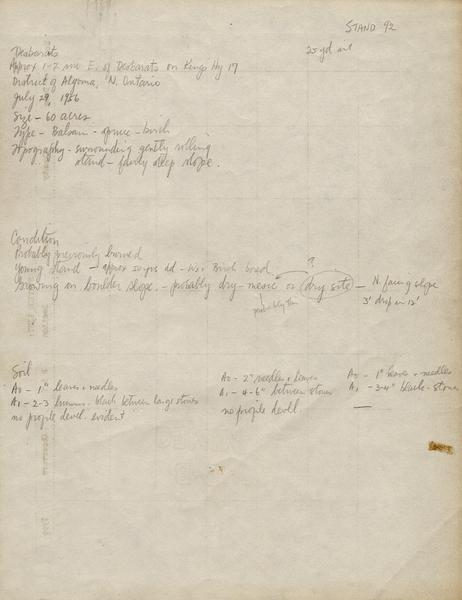 STAND 92
Desbarats
25 yd
Approx 1-2 mi E. of Desbarats on Kings Hy 17
District of Algoma, N. Ontario
July 29, 1956
Size - 60 acres
Type - Balsam - spruce - birch
Topography - surrounding gently rolling
stand - fairly steep slope.
Condition
Probably previously burned
Young stand - approx 20 yrs old - Birch bored
?
Growing on boulder slope. - probably dry-mesic or dry site - N. facing slope
probably this
3' drop in 12'
Soil
A0 - 1" leaves + needles
A1 - 2-3 humus - black between large stones
no profile devel. evident
A0 - 2" needles + leaves
A1 - 4-6" between stones
no profile devel.
A0 - 1" leaves + needles
A1 - 3-4" black - stones
—